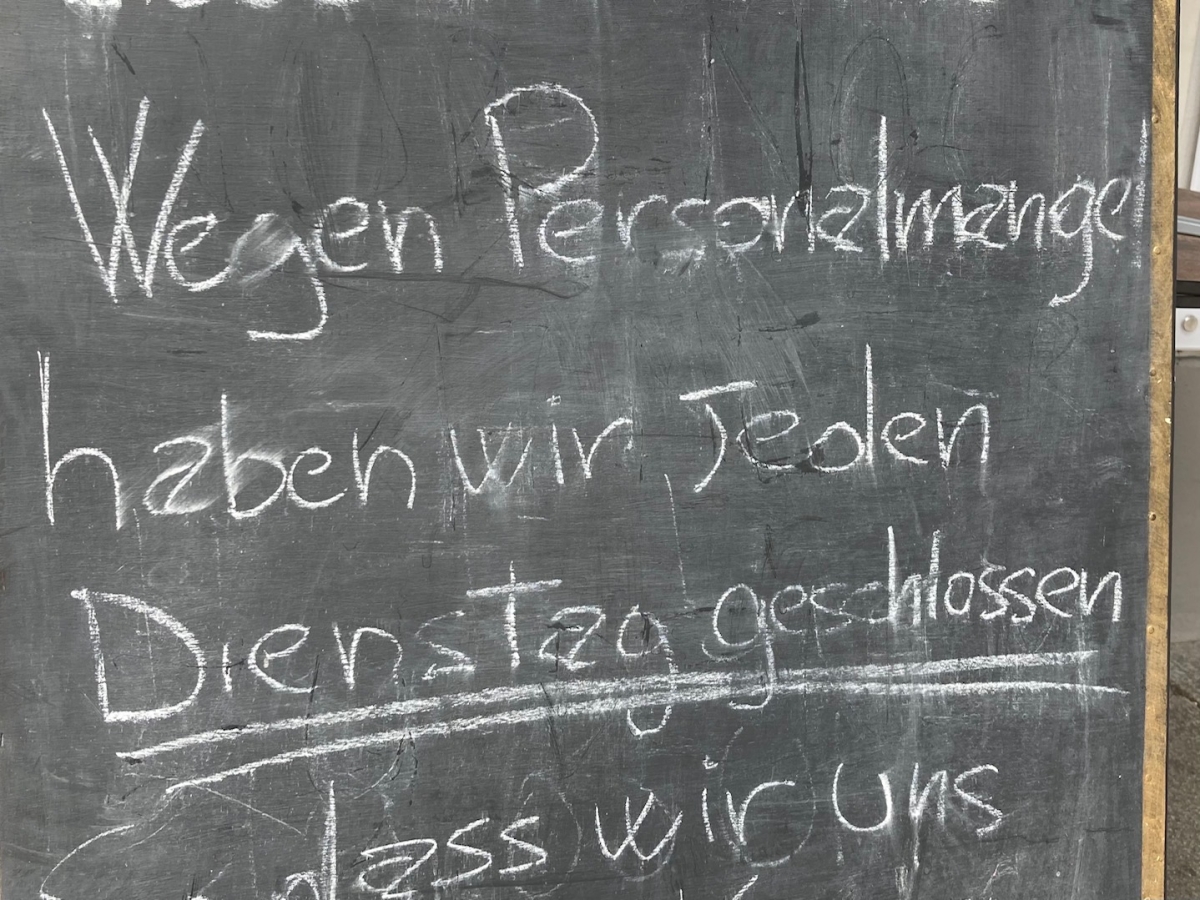 Wegen Personalmangel
haben wir Jeden
Dienstag geschlossen
dass wir uns